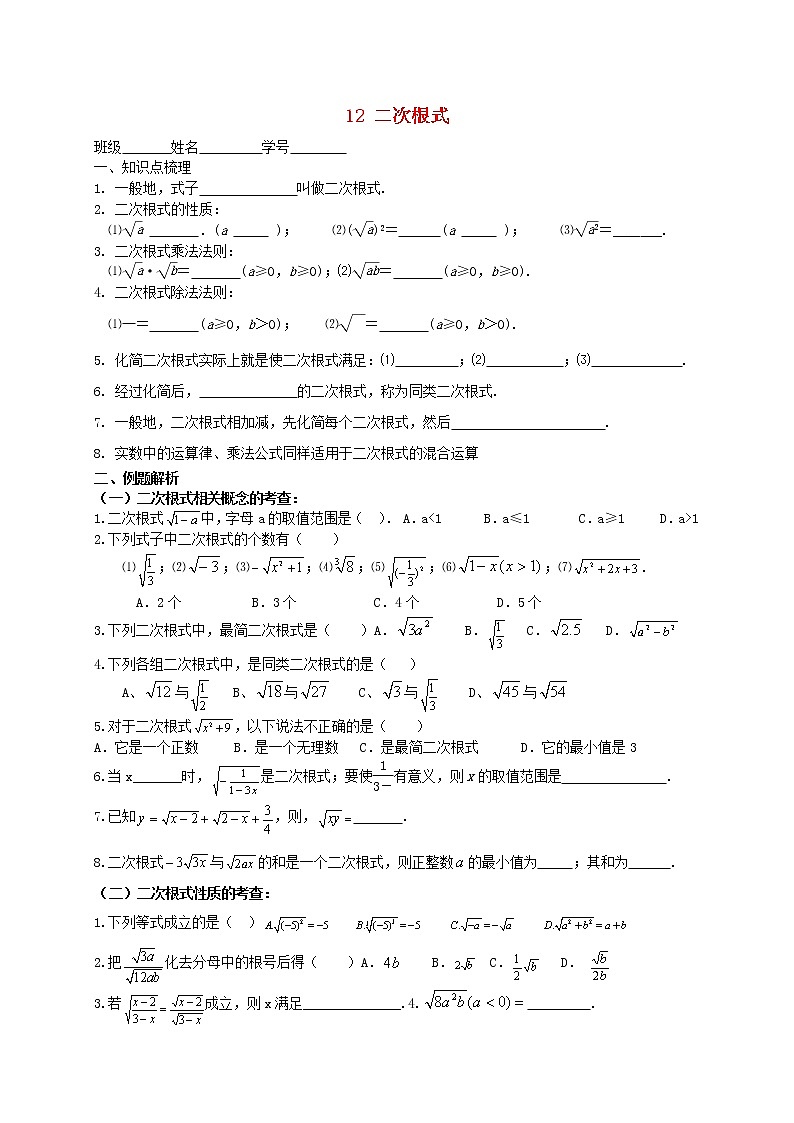 12 二次根式
班级_______姓名_________学号________
一、知识点梳理
1. 一般地,式子______________叫做二次根式.
2. 二次根式的性质:
⑴√a _______.(a _____ ); ⑵(√a)²=______(a _____ ); ⑶√a²=_______.
3. 二次根式乘法法则:
⑴√a·√b=_______(a≥0,b≥0);⑵√ab=_______(a≥0,b≥0).
4. 二次根式除法法则:
⑴—=_______(a≥0,b>0); ⑵√ =_______(a≥0,b>0).
5. 化简二次根式实际上就是使二次根式满足:⑴_________;⑵___________;⑶_____________.
6. 经过化简后,______________的二次根式,称为同类二次根式.
7. 一般地,二次根式相加减,先化简每个二次根式,然后______________________.
8. 实数中的运算律、乘法公式同样适用于二次根式的混合运算
二、例题解析
(一)二次根式相关概念的考查:
1.二次根式√(1-a)中,字母a的取值范围是( ). A.a<1 B.a≤1 C.a≥1 D.a>1
2.下列式子中二次根式的个数有( )
⑴√(1/3);⑵√(-3);⑶-√(x²+1);⑷∛8;⑸√((-1/3)²);⑹√(1-x)(x>1);⑺√(x²+2x+3).
A.2个 B.3个 C.4个 D.5个
3.下列二次根式中,最简二次根式是( )A.√(3a²) B.√(1/3) C.√2.5 D.√(a²-b²)
4.下列各组二次根式中,是同类二次根式的是( )
A、√12与√(1/2) B、√18与√27 C、√3与√(1/3) D、√45与√54
5.对于二次根式√(x²+9),以下说法不正确的是( )
A.它是一个正数 B.是一个无理数 C.是最简二次根式 D.它的最小值是3
6.当x_______时,√(-1/(1-3x))是二次根式;要使1/(3-)有意义,则x的取值范围是_______________.
7.已知y=√(x-2)+√(2-x)+3/4,则,√(xy)=_______.
8.二次根式-3√(3x)与√(2ax)的和是一个二次根式,则正整数a的最小值为_____;其和为______.
(二)二次根式性质的考查:
1.下列等式成立的是( ) A.√((-5)²)=-5 C.√(-a)=-√a D.√(a²+b²)=a+b
2.把√(3a)/√(12ab)化去分母中的根号后得( )A.4b B.2√b C.1/2√b D.√b/2b
3.若√((x-2)/(3-x))=√(x-2)/√(3-x)成立,则x满足______________.4.√(8a²b)(a<0)=_________.